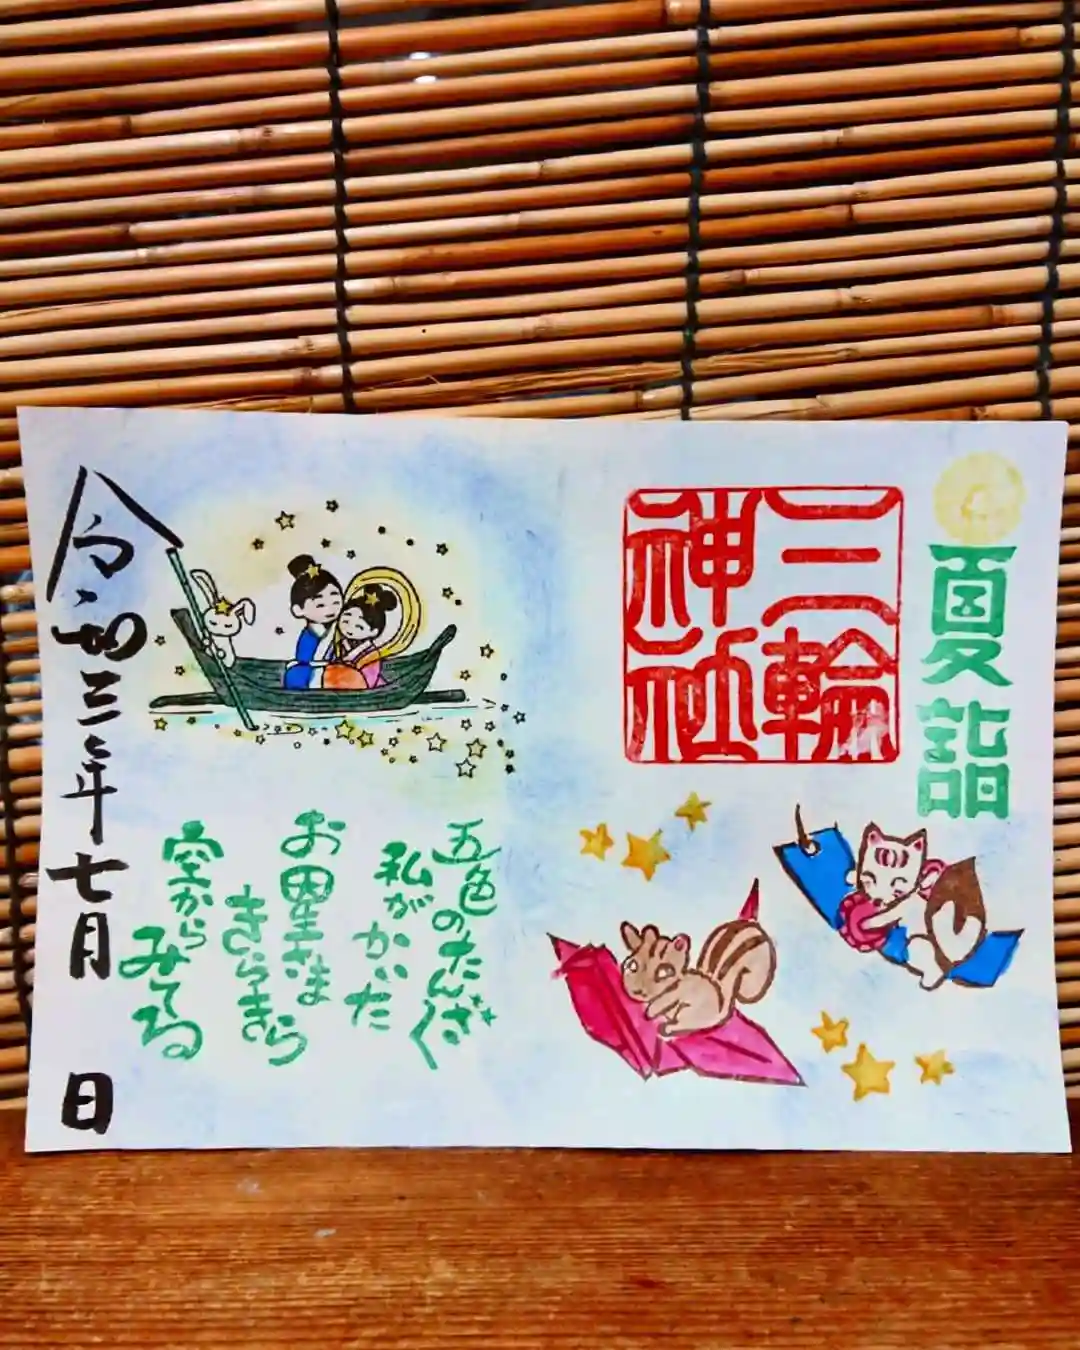 夏詣
三輪
神社
五色のたんざく
私がかいた
お星さま
きらきら
空からみてる
令和三年七月 日